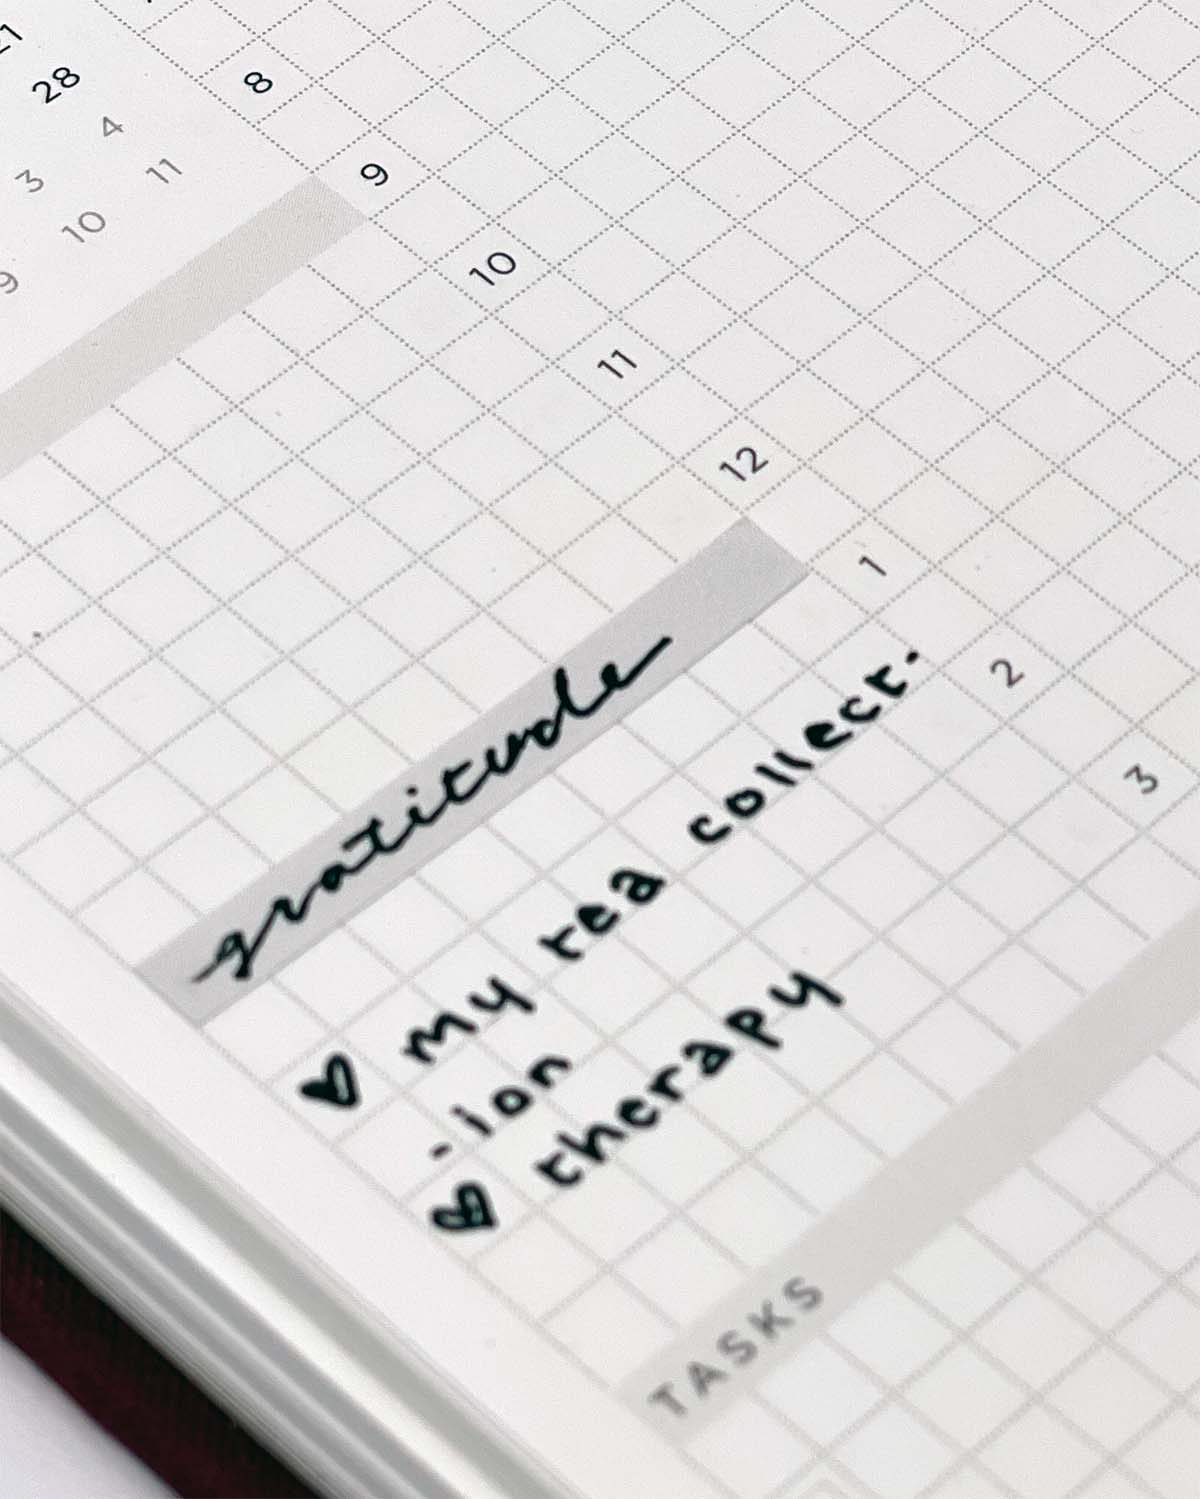 21
28
3 4
9 10 11
8
9
10
11
12
1
2
3
gratitude
♥ my tea collect-
-ion
♥ therapy
TASKS